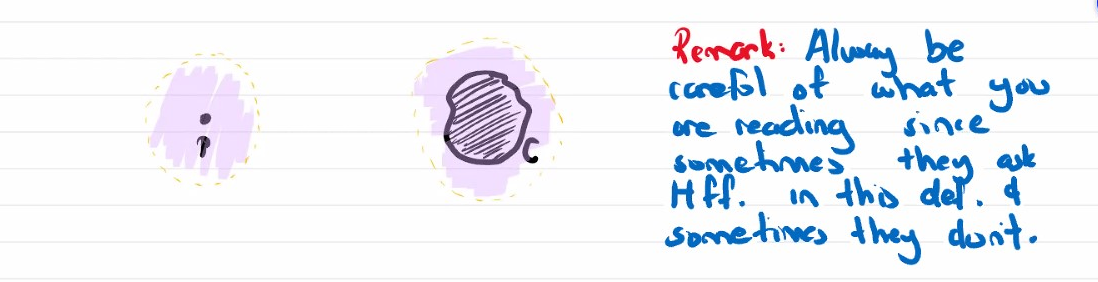 P
C
Remark: Always be
careful of what you
are reading since
sometimes they ask
Hff. in this def. &
sometimes they don't.